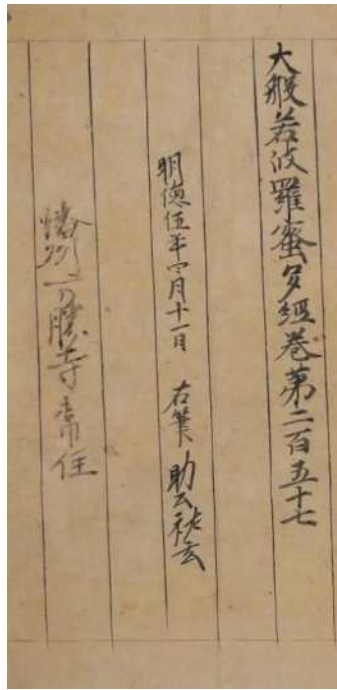 大般若波羅蜜多經卷第二百五十七
明徳伍年月十一日 右筆 助公祐玄
州万勝寺常住